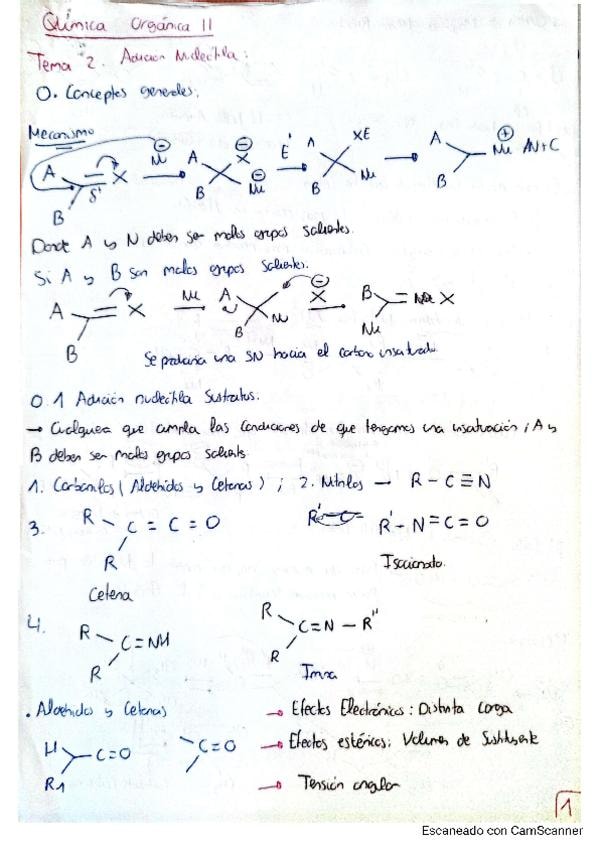 Química Orgánica II
Tema 2. Adición Nucleófila:
0. Conceptos generales:
Mecanismo
A B δ+ X Nu ⊖ A B X ⊖ Nu ⊖ E A B XE Nu A B Nu ⊕
Donde A y N deben ser malos grupos salientes.
Si A y B son malos grupos salientes.
A B X Nu A B Nu X ⊖ B Nu X
Se produciría una SN hacia el carbono insaturado
0.1 Adición nucleófila Sustratos:
→ Cualquiera que cumpla las condiciones de que tengamos una insaturación; A y
B deben ser malos grupos salients.
1. Carbonilos (Aldehídos y Cetonas); 2. Nitrilos → R - C ≡ N
3. R R C = C = O R' - N = C = O
Cetena Isocianato.
4. R R C = NH R R C = N - R''
Imina
. Aldehídos y Cetonas → Efectos Electrónicos: Distinta carga
H R1 C = O C = O → Efectos estéricos: Volumen de Sustituyente
→ Tensión angular
1
Escaneado con CamScanner